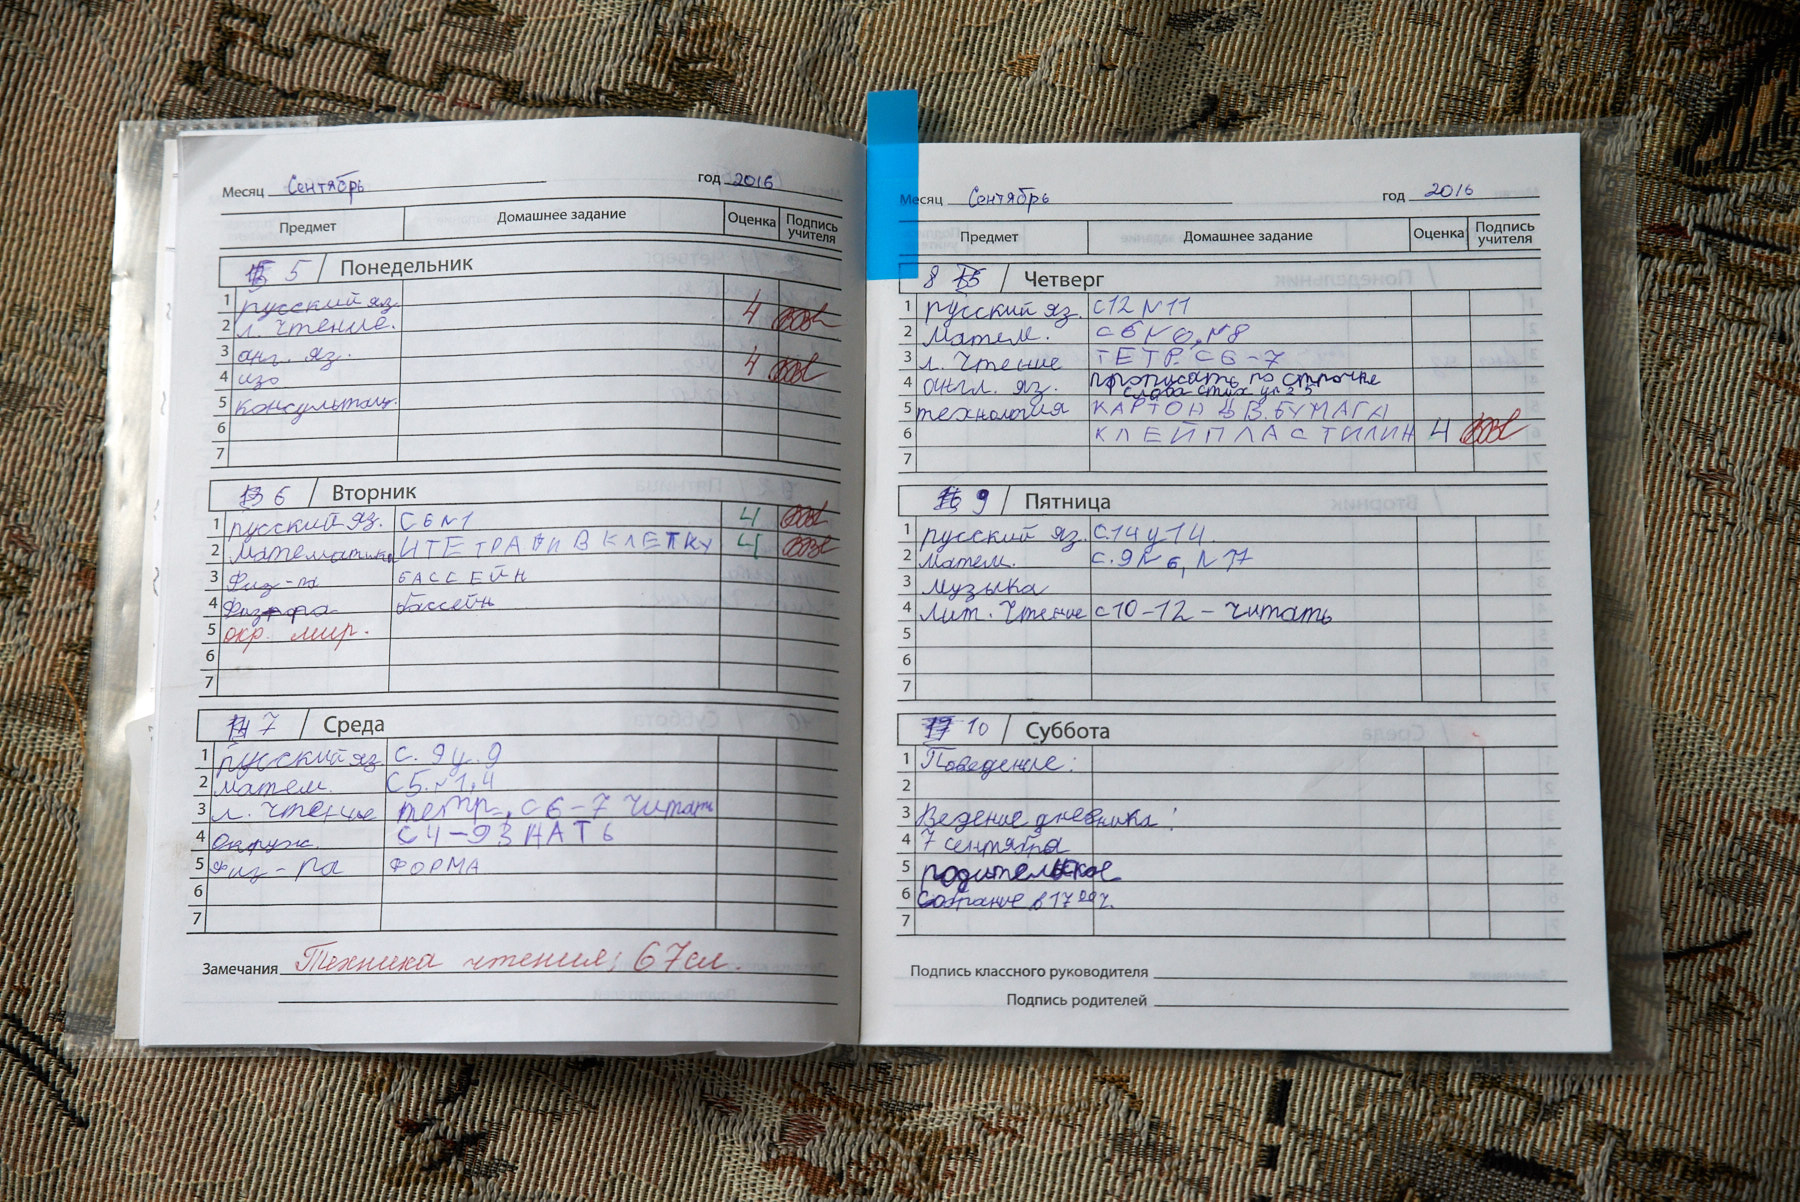 Месяц Сентябрь год 2016
Предмет Домашнее задание Оценка Подпись учителя
5 Понедельник
1 русский яз.
2 л. чтение. 4
3 анг. яз.
4 изо 4
5 консультац.
6
7
6 Вторник
1 русский яз. С 6 №1 4
2 математика ТЕТРАДИ В КЛЕТКУ 4
3 Физ-ра БАССЕЙН
4 бассейн
5 окр. мир.
6
7
7 Среда
1 русский яз с. 9 у. 9
2 матем. С 5. №1, 4
3 л. чтение тетр. с 6-7 читать
4 окруж. С 4-9 ЗНАТЬ
5 Физ-ра ФОРМА
6
7
Замечания Техника чтения: 67 сл.
Месяц Сентябрь год 2016
Предмет Домашнее задание Оценка Подпись учителя
8 Четверг
1 русский яз. С 12 №11
2 Матем. С 6 №6, №8
3 л. Чтение ТЕТР. С 6-7
4 англ. яз. прописать по строчке
слова стих
5 технология КАРТОН ЦВ. БУМАГА
6 КЛЕЙ ПЛАСТИЛИН 4
7
9 Пятница
1 русский яз. С. 14 у 14.
2 Матем. С. 9 №6, №7
3 Музыка
4 Лит. Чтение с 10-12 - читать
5
6
7
10 Суббота
1 Поведение:
2
3 Ведение дневника:
4 7 сентября
5 родительское
6 собрание в 17 00 ч.
7
Подпись классного руководителя
Подпись родителей